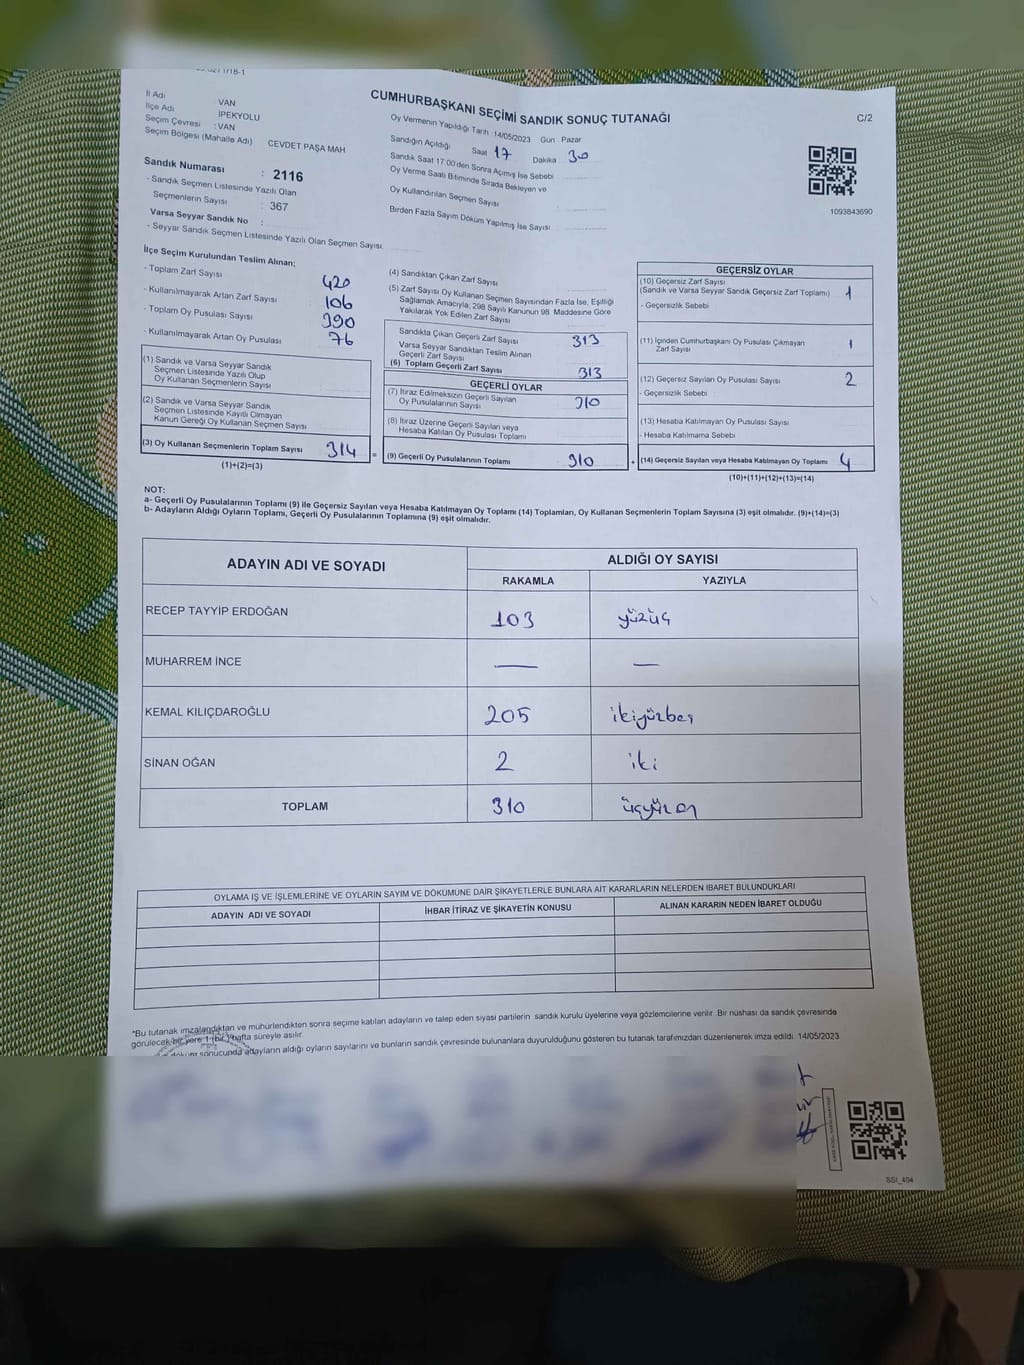 CUMHURBAŞKANI SEÇİMİ SANDIK SONUÇ TUTANAĞI
C/2
İl Adı VAN
İlçe Adı İPEKYOLU
Seçim Çevresi : VAN
Seçim Bölgesi (Mahalle Adı) CEVDET PAŞA MAH
Sandık Numarası : 2116
- Sandık Seçmen Listesinde Yazılı Olan
Seçmenlerin Sayısı : 367
Varsa Seyyar Sandık No :
- Seyyar Sandık Seçmen Listesinde Yazılı Olan Seçmen Sayısı
Oy Vermenin Yapıldığı Tarih :14/05/2023 Gün Pazar
Sandığın Açıldığı Saat 17 Dakika 30
Sandık Saat 17:00'den Sonra Açımış İse Sebebi
Oy Verme Saati Bitiminde Sırada Bekleyen ve
Oy Kullandırılan Seçmen Sayısı
Birden Fazla Sayım Döküm Yapılmış İse Sayısı
1093843690
İlçe Seçim Kurulundan Teslim Alınan;
- Toplam Zarf Sayısı 420
- Kullanılmayarak Artan Zarf Sayısı 106
- Toplam Oy Pusulası Sayısı 390
- Kullanılmayarak Artan Oy Pusulası 76
(1) Sandık ve Varsa Seyyar Sandık
Seçmen Listesinde Yazılı Olup
Oy Kullanan Seçmenlerin Sayısı
(2) Sandık ve Varsa Seyyar Sandık
Seçmen Listesinde Kayıtlı Olmayan
Kanun Gereği Oy Kullanan Seçmen Sayısı
(3) Oy Kullanan Seçmenlerin Toplam Sayısı 314 =
(1)+(2)=(3)
(4) Sandıktan Çıkan Zarf Sayısı
(5) Zarf Sayısı Oy Kullanan Seçmen Sayısından Fazla İse, Eşitliği
Sağlamak Amacıyla; 298 Sayılı Kanunun 98 Maddesine Göre
Yakılarak Yok Edilen Zarf Sayısı
Sandıkta Çıkan Geçerli Zarf Sayısı 313
Varsa Seyyar Sandıktan Teslim Alınan
Geçerli Zarf Sayısı
(6) Toplam Geçerli Zarf Sayısı 313
GEÇERLİ OYLAR
(7) İtiraz Edilmeksizin Geçerli Sayılan
Oy Pusulalarının Sayısı 310
(8) İtiraz Üzerine Geçerli Sayılan veya
Hesaba Katılan Oy Pusulası Toplamı
(9) Geçerli Oy Pusulalarının Toplamı 310 +
GEÇERSİZ OYLAR
(10) Geçersiz Zarf Sayısı
(Sandık ve Varsa Seyyar Sandık Geçersiz Zarf Toplamı) 1
- Geçersizlik Sebebi
(11) İçinden Cumhurbaşkanı Oy Pusulası Çıkmayan
Zarf Sayısı 1
(12) Geçersiz Sayılan Oy Pusulası Sayısı 2
- Geçersizlik Sebebi
(13) Hesaba Katılmayan Oy Pusulası Sayısı
- Hesaba Katılmama Sebebi
(14) Geçersiz Sayılan veya Hesaba Katılmayan Oy Toplamı 4
(10)+(11)+(12)+(13)=(14)
NOT:
a- Geçerli Oy Pusulalarının Toplamı (9) ile Geçersiz Sayılan veya Hesaba Katılmayan Oy Toplamı (14) Toplamları, Oy Kullanan Seçmenlerin Toplam Sayısına (3) eşit olmalıdır. (9)+(14)=(3)
b- Adayların Aldığı Oyların Toplamı, Geçerli Oy Pusulalarının Toplamına (9) eşit olmalıdır.
ADAYIN ADI VE SOYADI ALDIĞI OY SAYISI
RAKAMLA YAZIYLA
RECEP TAYYİP ERDOĞAN 103 yüzüç
MUHARREM İNCE — —
KEMAL KILIÇDAROĞLU 205 ikiyüzbeş
SİNAN OĞAN 2 iki
TOPLAM 310 üçyüzon
OYLAMA İŞ VE İŞLEMLERİNE VE OYLARIN SAYIM VE DÖKÜMÜNE DAİR ŞİKAYETLERLE BUNLARA AİT KARARLARIN NELERDEN İBARET BULUNDUKLARI
ADAYIN ADI VE SOYADI İHBAR İTİRAZ VE ŞİKAYETİN KONUSU ALINAN KARARIN NEDEN İBARET OLDUĞU
*Bu tutanak imzalandıktan ve mühürlendikten sonra seçime katılan adayların ve talep eden siyasi partilerin sandık kurulu üyelerine veya gözlemcilerine verilir .Bir nüshası da sandık çevresinde
görülecek bir yere 1 (bir) hafta süreyle asılır.
döküm sonucunda adayların aldığı oyların sayılarını ve bunların sandık çevresinde bulunanlara duyurulduğunu gösteren bu tutanak tarafımızdan düzenlenerek imza edildi. 14/05/2023
SSI_454